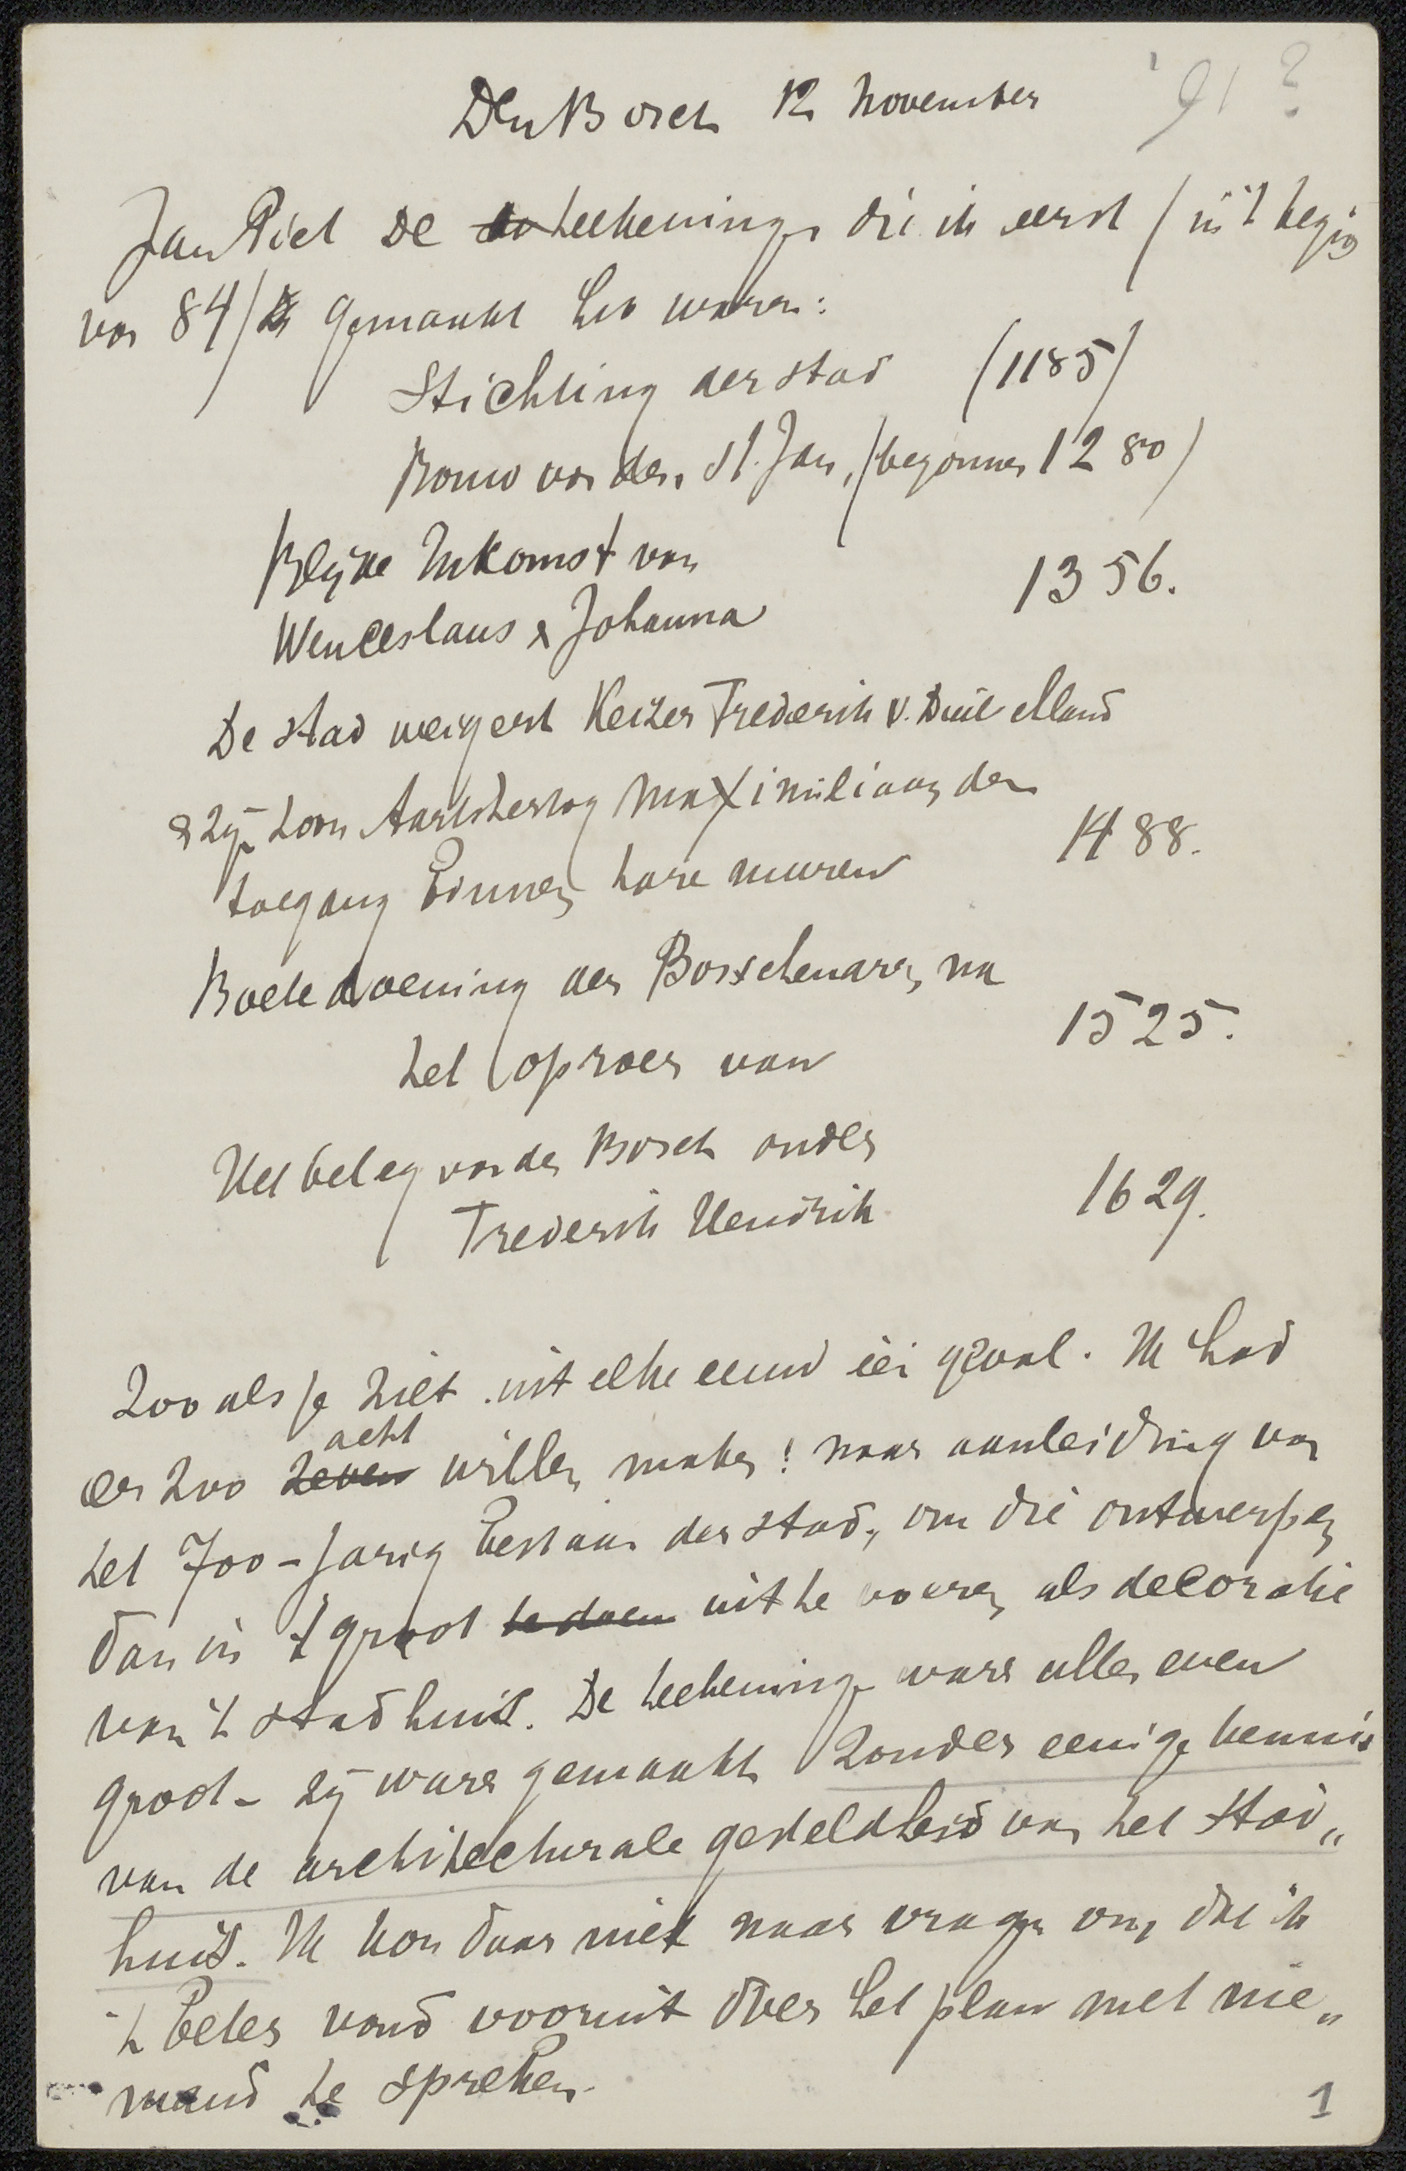 Den Bosch 12 November '91?
Jan Piet De teekeningen die ik eerst (in 't begin
van 84) gemaakt heb waren:
Stichting der stad (1185)
Bouw van den St. Jan, (begonnen 1280)
Blijde Inkomst van
Wenceslaus & Johanna 1356.
De stad weigert Keizer Frederik v. Duitschland
& zijn zoon Aartshertog Maximiliaan den
toegang binnen hare muren 1488.
Boetedoening der Bosschenaren, na
het oproer van 1525.
Het beleg van den Bosch onder
Frederik Hendrik 1629.
Zooals je ziet uit elke eeuw één geval. Ik had
er zoo zeven acht willen maken: naar aanleiding van
het 700-jarig bestaan der stad, om die ontwerpen
dan in 't groot te doen uit te voeren als decoratie
van 't stadhuis. De teekeningen waren alle even
groot - zij waren gemaakt zonder eenige kennis
van de architecturale gesteldheid van het Stad„
huis. Ik kon daar niet naar vragen omdat ik
't beter vond vooruit over het plan met nie„
mand te spreken.
1